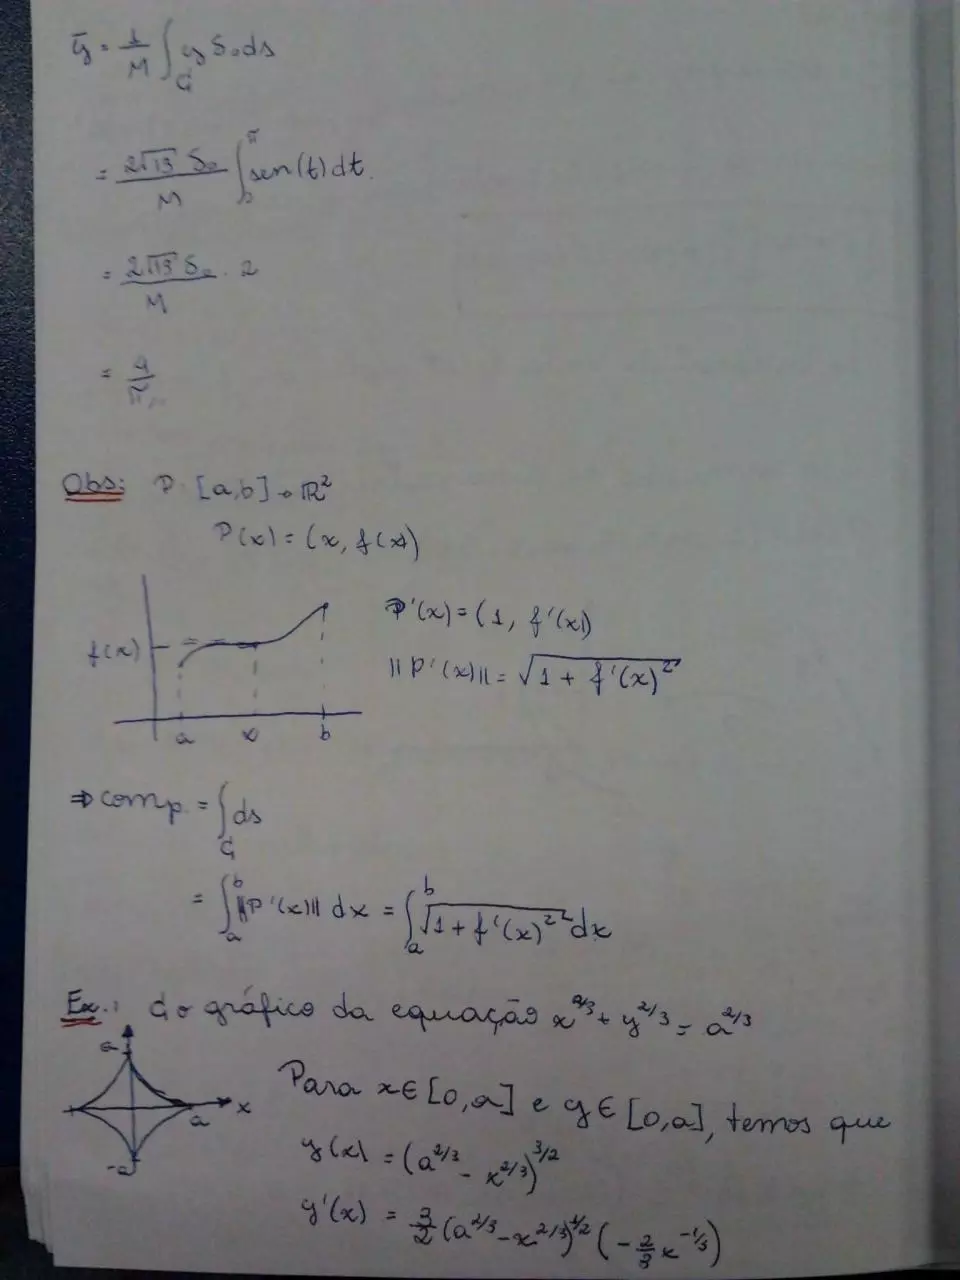 ȳ = 1/M ∫_C y δ₀ ds
= 2√13 δ₀ / M ∫_0^π sen(t) dt.
= 2√13 δ₀ / M · 2
= 4/π //
Obs: P: [a,b] → ℝ²
P(x) = (x, f(x))
P'(x) = (1, f'(x))
f(x)
||P'(x)|| = √(1 + f'(x)²)
a x b
⇒ comp. = ∫_C ds
= ∫_a^b ||P'(x)|| dx = ∫_a^b √(1 + f'(x)²) dx
Ex.: C o gráfico da equação x^{2/3} + y^{2/3} = a^{2/3}
a
Para x ∈ [0,a] e y ∈ [0,a], temos que
a x
y(x) = (a^{2/3} - x^{2/3})^{3/2}
-a
y'(x) = 3/2 (a^{2/3} - x^{2/3})^{1/2} (-2/3 x^{-1/3})